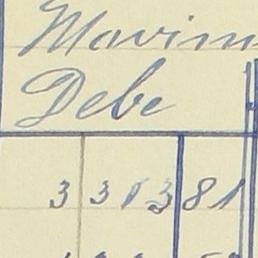 Movim
Debe
3 313 81